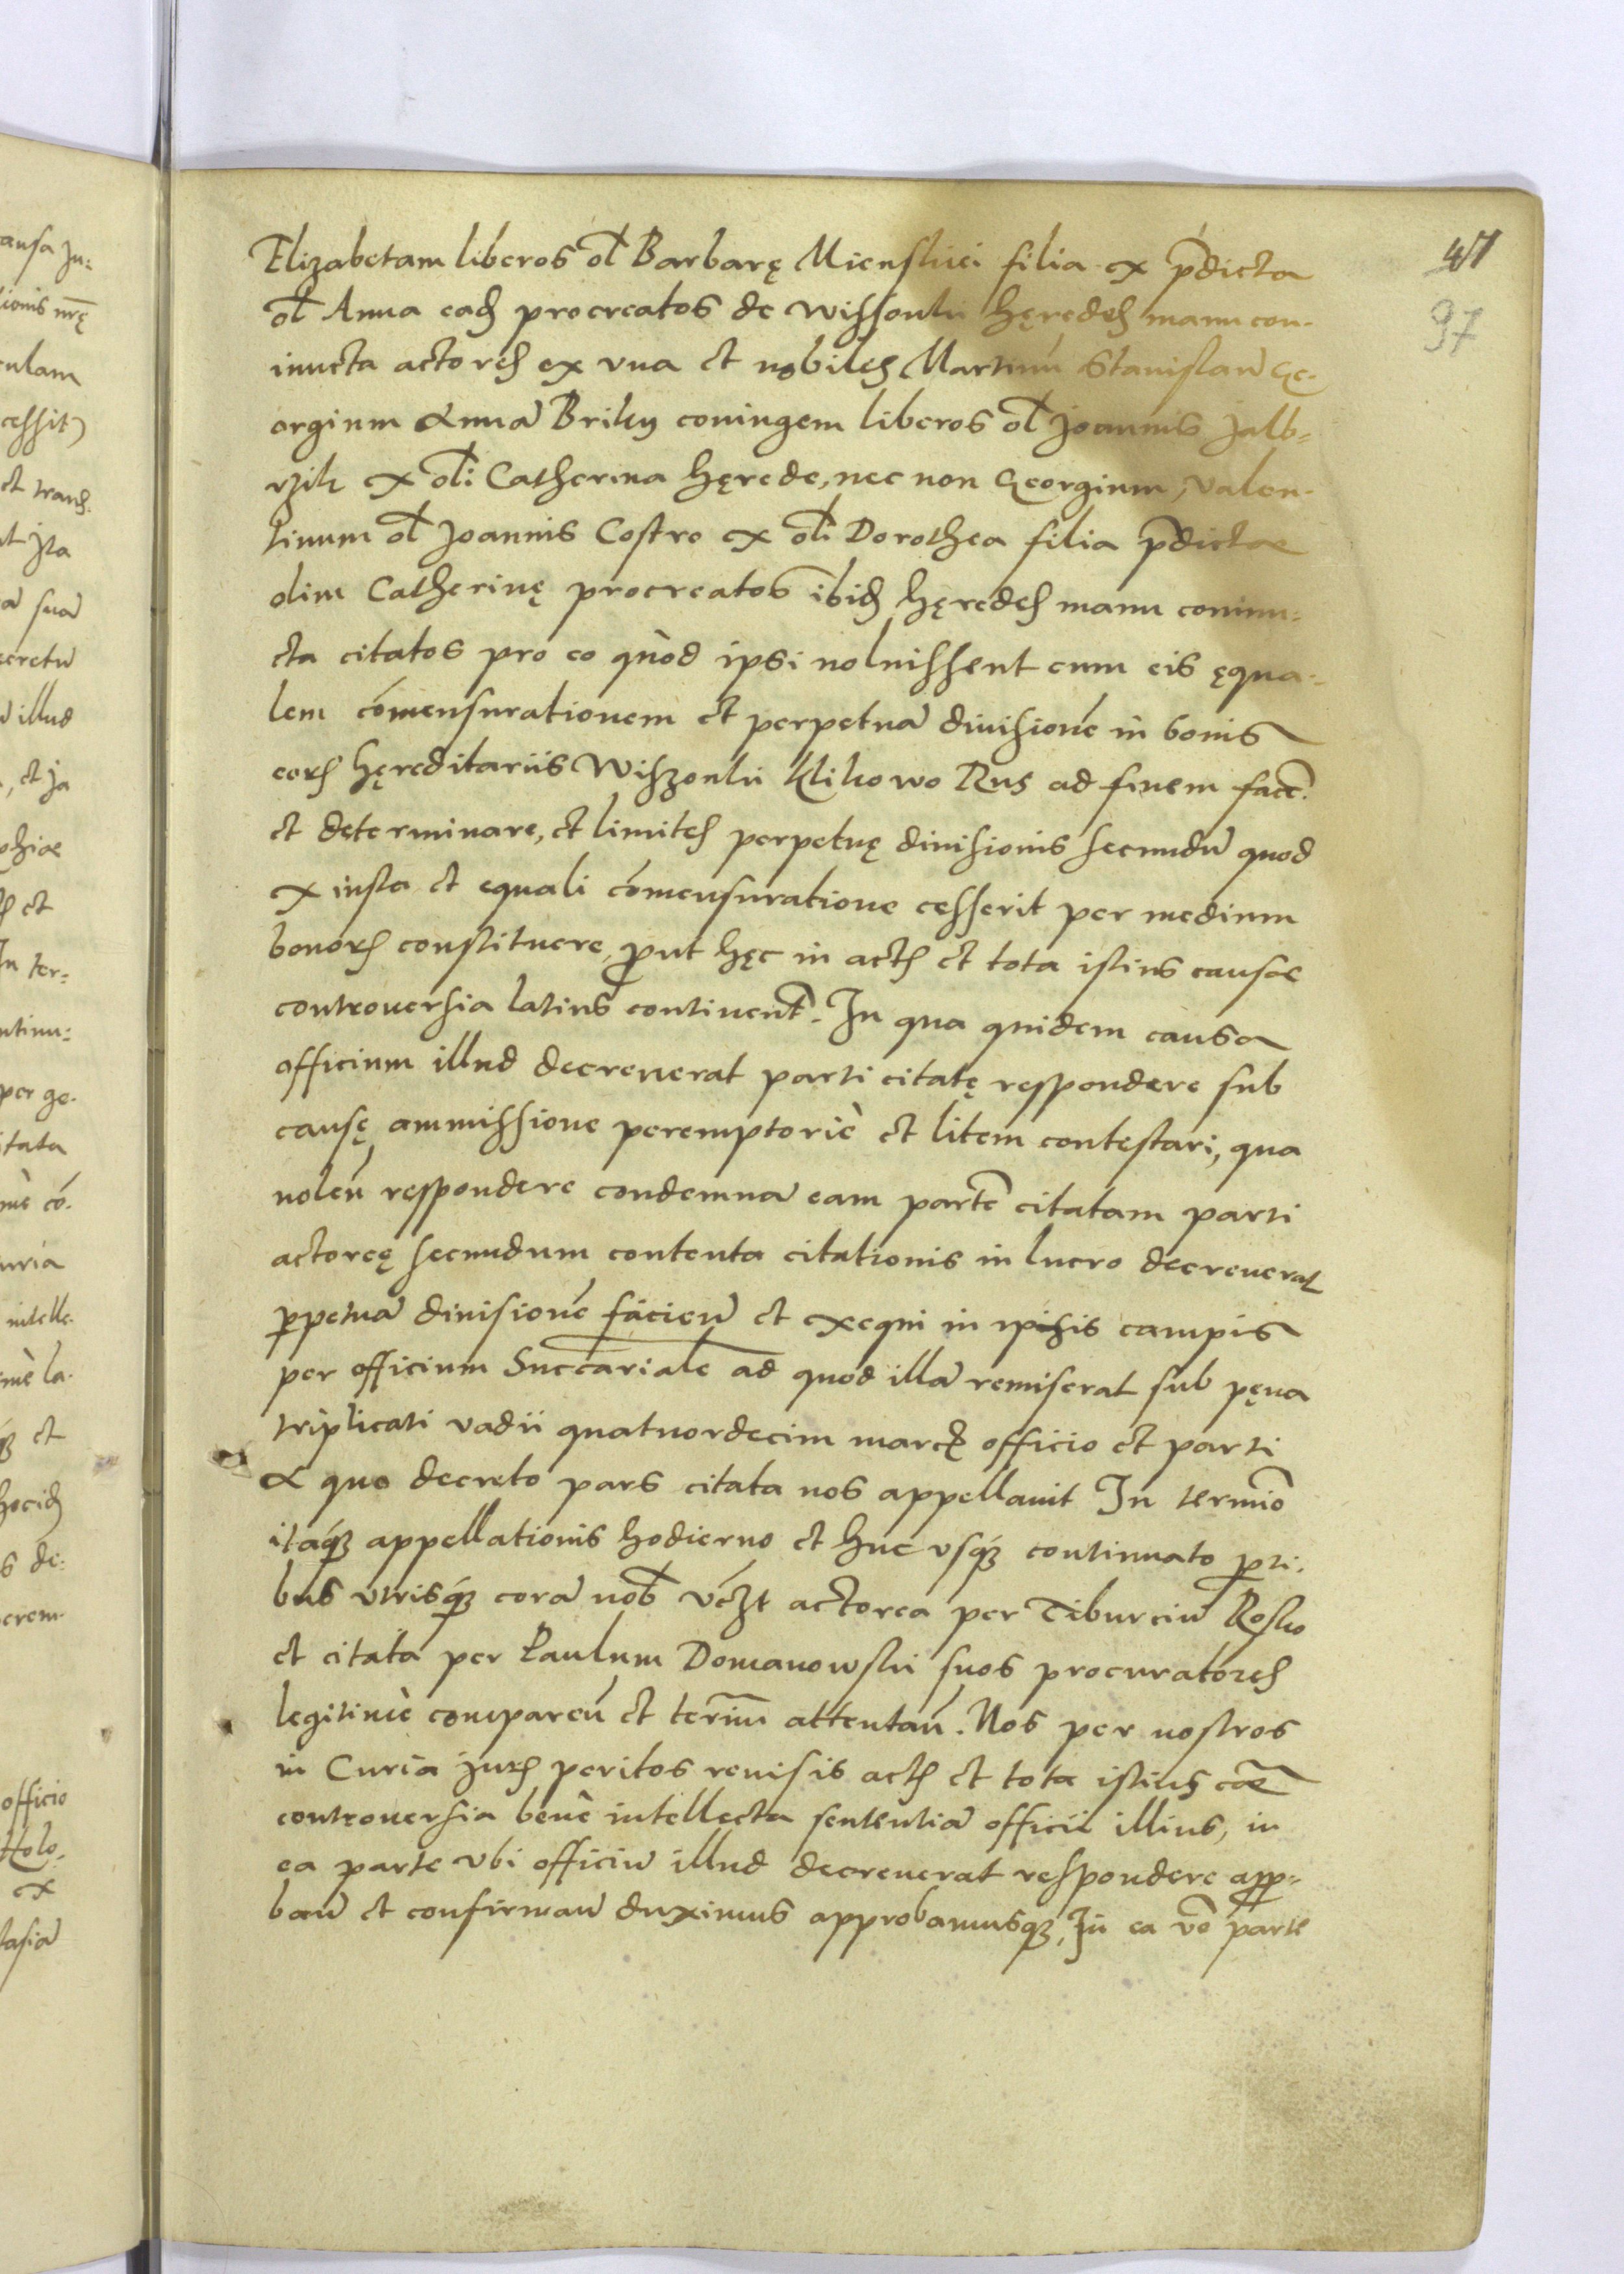 41
97
Elizabetam liberos ol Barbarę Mienskiei filia ex pdicta
ol Anna eadē procreatos de Wissonki hęredes manu con-
iuncta actores ex vna et nobiles Martinū Stanislaū Ge-
orgium Annā Briky coniugem liberos ol Joannis Jalb-
rzik ex oli Catherina hęrede, nec non Georgium, Valen-
tinum ol Joannis Costro ex oli Dorothea filia pdictae
olim Catherinę procreatos ibid hęredes manu coniun-
cta citatos pro eo quòd ipsi noluissent cum eis ęqua-
lem cōmensurationem et perpetuā diuisionē in bonis
eorū hęreditariis Wiszonki Klikowo Rus ad finem facē
et determinare, et limites perpetuę diuisionis secundū quod
ex iusta et equali cōmensuratione cesserit per medium
bonorū constituere, prout hęc in actis et tota istius causae
controuersia latius continent. In qua quidem causa
officium illud decreuerat parti citatę respondere sub
causę ammissione peremptoriè et litem contestari, qua
nolen respondere condemnā eam partē citatam parti
actoreę secundum contenta citationis in lucro decreuerat
ppetuā diuisionē faciēn et exequi in ipsis campis
per officium Succāriale ad quod illā remiserat sub pęna
triplicati vadii quatuordecim marcē officio et parti
A quo decreto pars citata nos appellauit In terminō
itaq appellationis hodierno et huc vsq continuato pti-
bus vtrisq corā nob vczt actorea per Tiburciū Rosko
et citata per Paulum Domanowski suos procuratores
legitimè comparen et termin attentan. Nos per nostros
in Curia juris peritos reuisis actis et tota istius cae
controuersia benè intellecta sententiā officii illius, in
ea parte vbi officiū illud decreuerat respondere appro-
ban et confirman duximus approbamusq, In ea vō parte